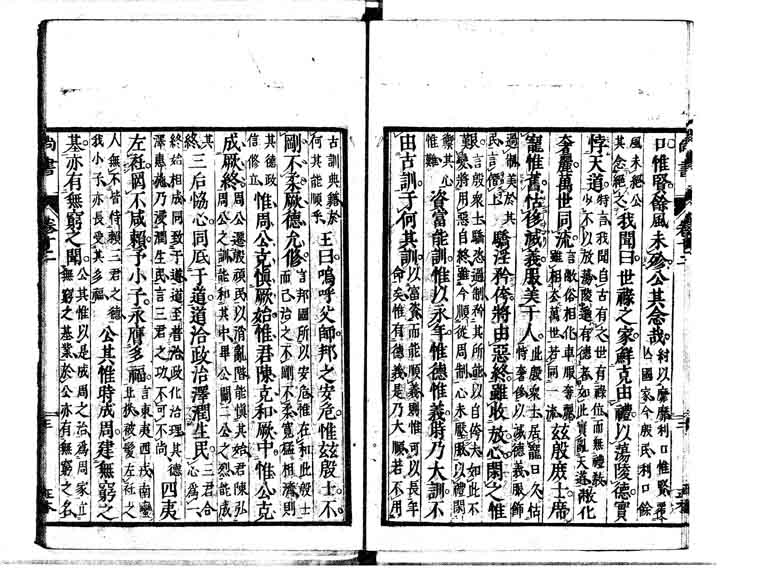 口惟賢餘風未殄公其念哉紂以靡靡利口惟賢覆亡國家今殷民利口餘
風未絕公其念絕之我聞曰世祿之家鮮克由禮以蕩陵德實
悖天道特言我聞自古有之世有祿位而無禮教少不以放蕩陵邈有德者如此實亂天道敝化
奢麗萬世同流言敝俗相化車服奢麗雖相去萬世若同一流茲殷庶士席
寵惟舊怙侈滅義服美于人此殷眾士居寵日久怙恃奢侈以滅德義服飾
過制美於其民言僭上驕淫矜侉將由惡終雖收放心閑之惟
艱言殷眾士驕恣過制矜其所能以自侉大如此不變將用惡自終雖今順從周制心未壓服以禮閑
禦其心惟難資富能訓惟以永年惟德惟義時乃大訓不
由古訓于何其訓以富資而能順義則惟可以長年命矣惟有德義是乃大順若不用
尚書
卷十二
古訓典籍於何其能順乎王曰嗚呼父師邦之安危惟茲殷士不
剛不柔厥德允修言邦國所以安危惟在和此殷士而已治之不剛不柔寬猛相濟則
其德政信修立惟周公克慎厥始惟君陳克和厥中惟公克
成厥終周公遷殷頑民以消亂階能慎其始君陳弘周公之訓能和其中畢公闡二公之烈能成
其終三后恊心同底于道道洽政治澤潤生民三君合心為一
終始相成同致于道道至普洽政化治理其德澤惠施乃浸潤生民言三君之功不可不尚四夷
左衽罔不咸賴予小子永膺多福言東夷西戎南蠻北狄被髮左衽之
人無不皆恃賴三君之德我小子亦長受其多福公其惟時成周建無窮之
基亦有無窮之聞公其惟以是成周之治為周家立無窮之基業於公亦有無窮之名
尚書
卷十二